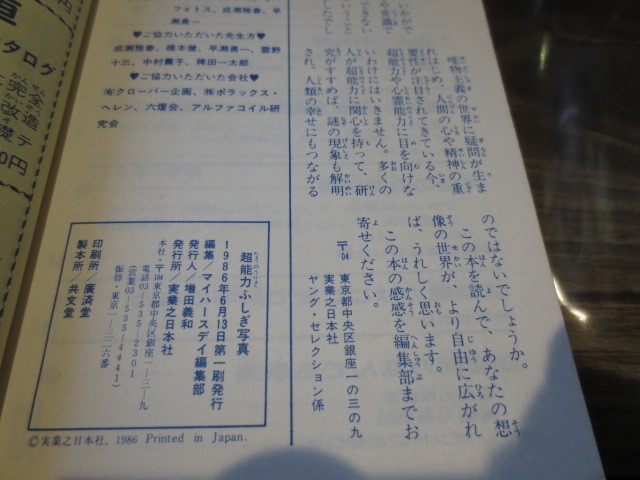 いかがで
や不思議で
できない
いうこと
したでし
唯物主義の世界に疑問が生ま
れはじめ、人間の心や精神の重
要性が注目されてきている今、
超能力や心霊能力に目を向けな
いわけにはいきません。多くの
人が超能力に関心を持って、研
究がすすめば、謎の現象も解明
され、人類の幸せにもつながる
のではないでしょうか。
この本を読んで、あなたの想
像の世界が、より自由に広がれ
ば、うれしく思います。
この本の感想を編集部までお
寄せください。
〒104 東京都中央区銀座一の三の九
実業之日本社
ヤング・セレクション係
フォトス、成瀬雅春、早
瀬勇一
♥ご協力いただいた先生方♥
成瀬雅春、橋本健、早瀬勇一、雲野
十三、中村薫子、稗田一太郎
♥ご協力いただいた会社♥
㈲クローバー企画、㈱ポラックス・
ヘレン、六燿会、アルファコイル研
究会
超能力ふしぎ写真
1986年6月13日第一刷発行
編集/マイハースデイ編集部
発行人/増田義和
発行所/実業之日本社
本社・〒104東京都中央区銀座一―三―九
電話03―535―2301
(営業03―535―4441)
振替・東京一―三二六番
印刷所/廣済堂
製本所/共文堂
©実業之日本社, 1986 Printed in Japan.
タログ
完全
改造
礎テ
0円